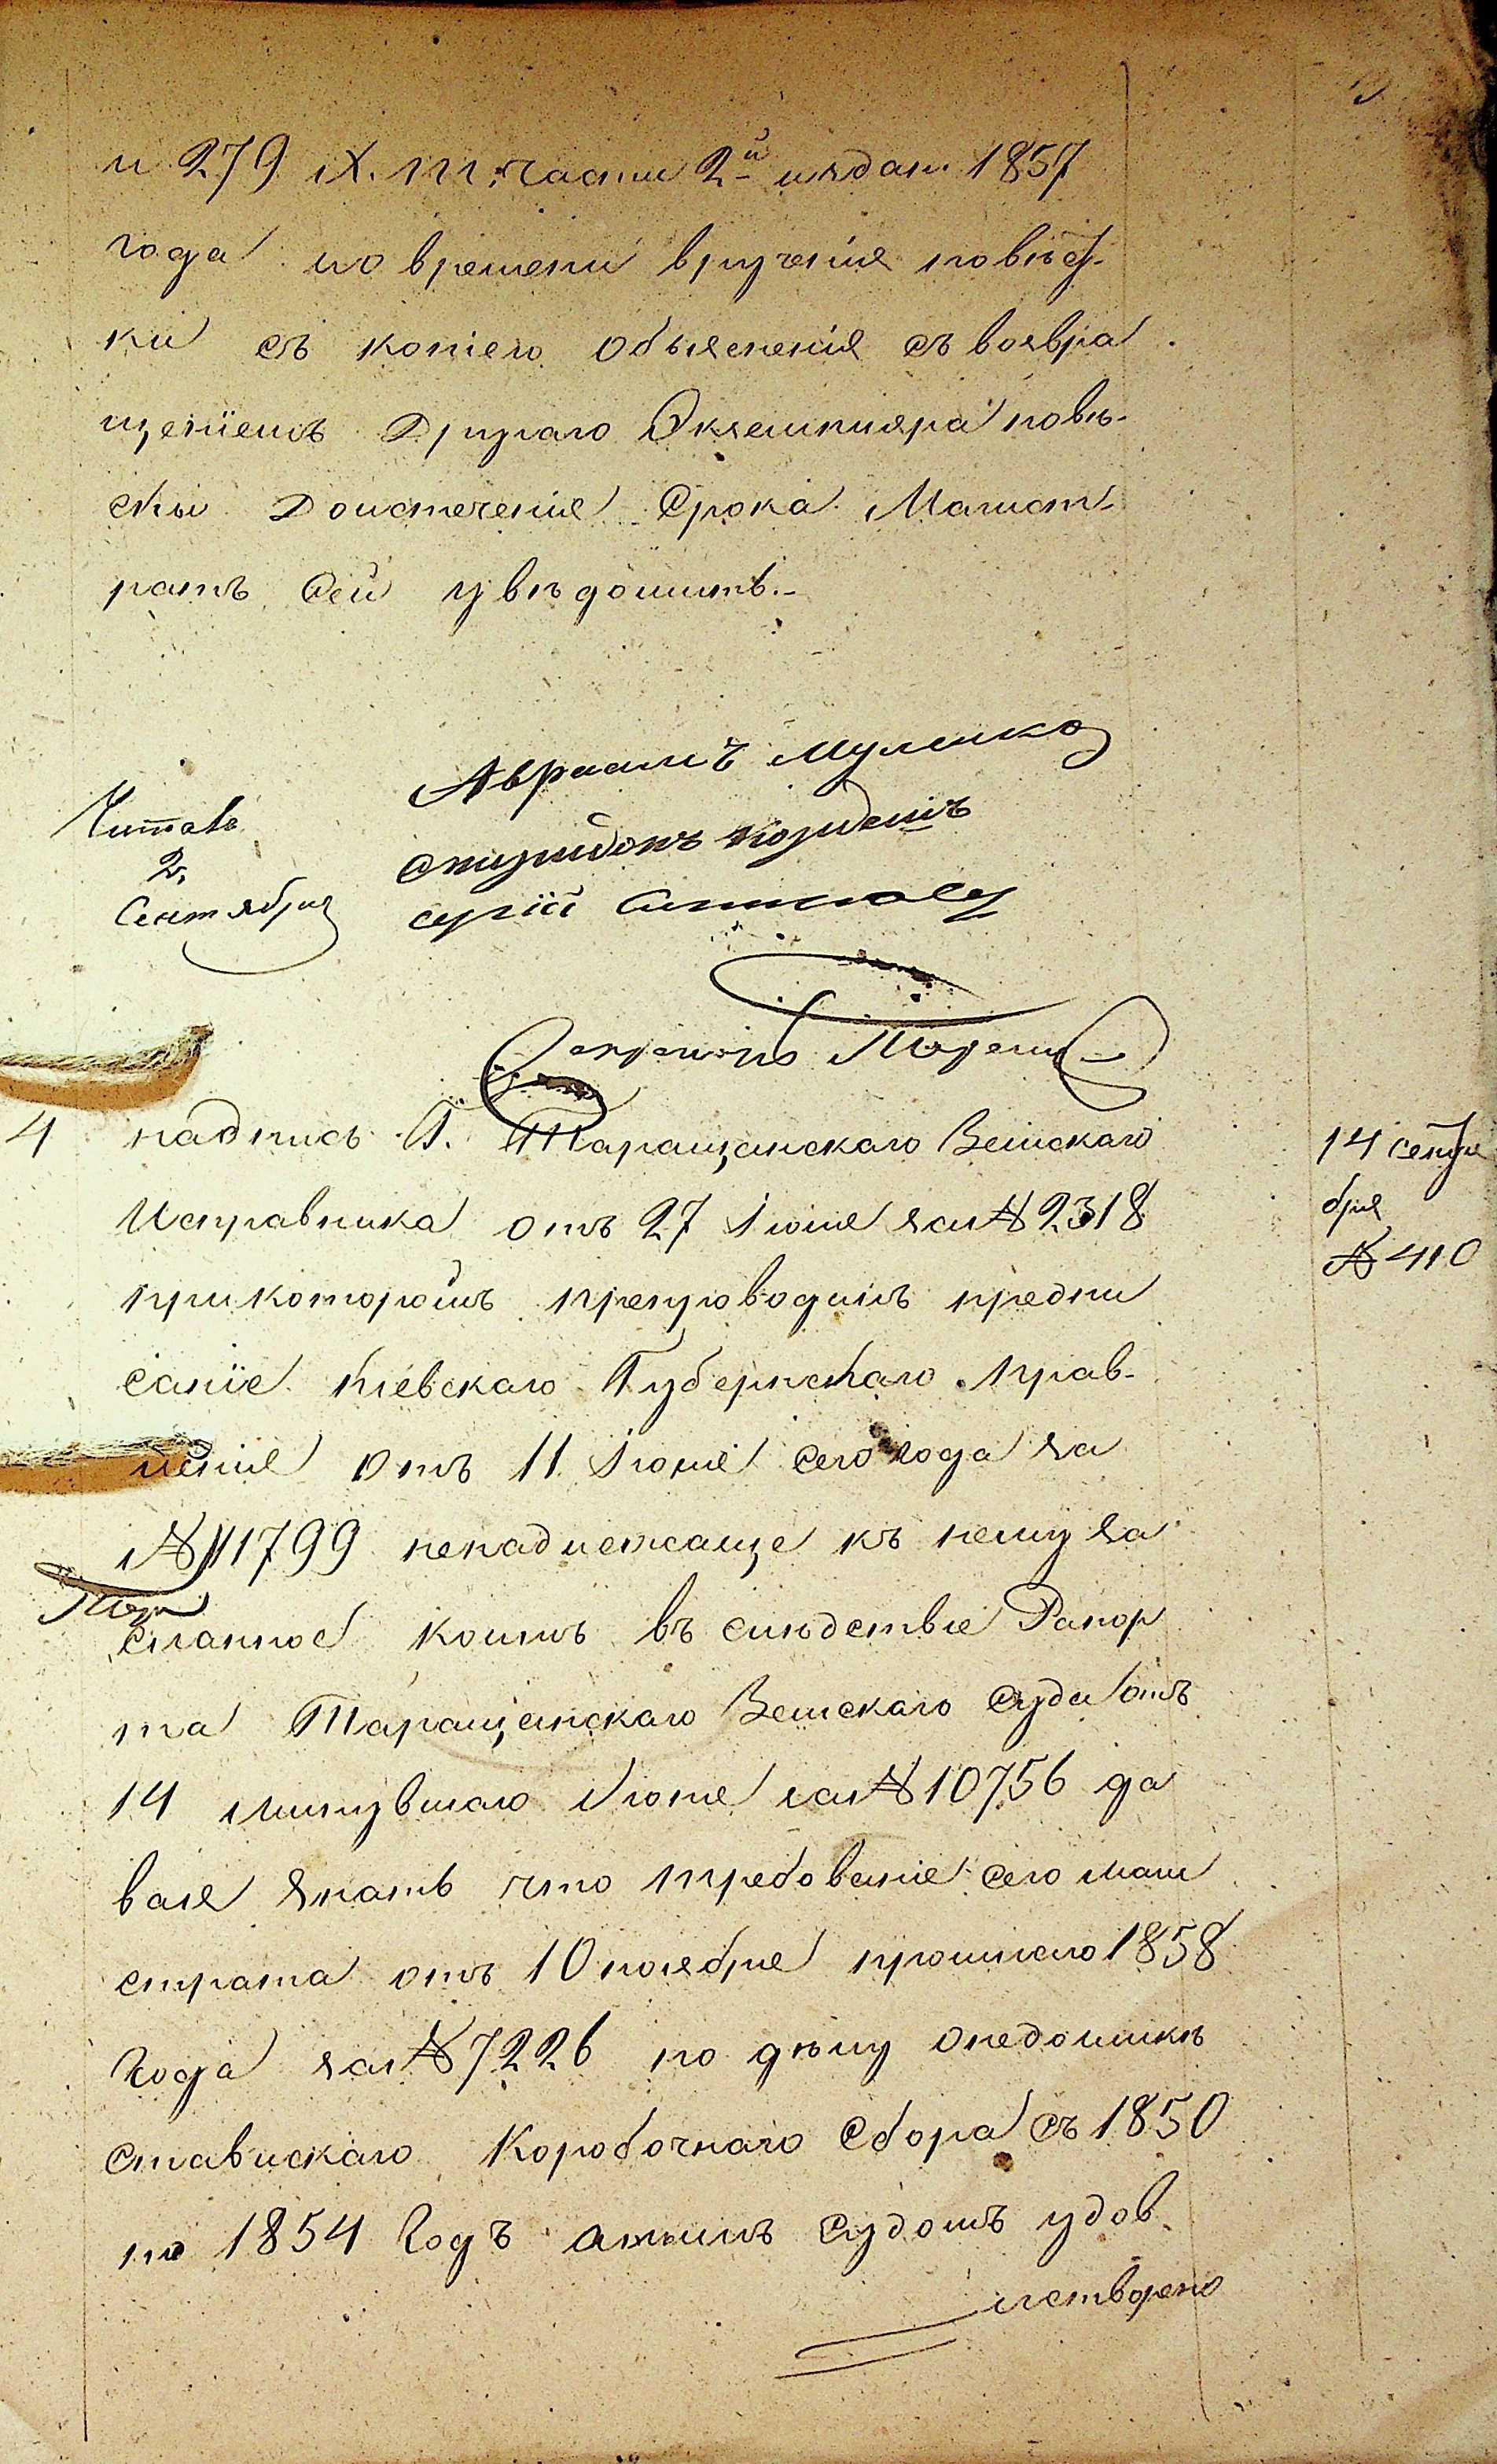 и 279 IX. т. части 2й издан. 1857
года по времени вручения повѣст-
ки съ копіею объясненія съ возвра
щеніемъ Другаго Экземпляра повѣ-
ски Доистеченія Срока Магист-
ратъ Сей увѣдомить.-
Авраамъ
Читалъ
2,
Сентября
Секретарь
4 надпись Г. Таращанскаго Земскаго
Исправника отъ 27 Іюня за №2318
прикоторомъ препроводилъ предпи
саніе Кіевскаго Губернскаго Прав-
ленія отъ 11 Іюня сего года за
№11799 ненадлежаще къ нему за
сланное коимъ въ слѣдствіе Рапор
та Таращанскаго Земскаго Суда отъ
14 минувшаго Іюня за №10756 да
вая знать что требованіе сего маги
страта отъ 10 ноября прошлаго 1858
года за №7226 по дѣлу онедоимкѣ
ставискаго Коробочнаго Сбора съ 1850
по 1854 Годъ Судомъ удов
летворено
14 сентя
бря
№ 410